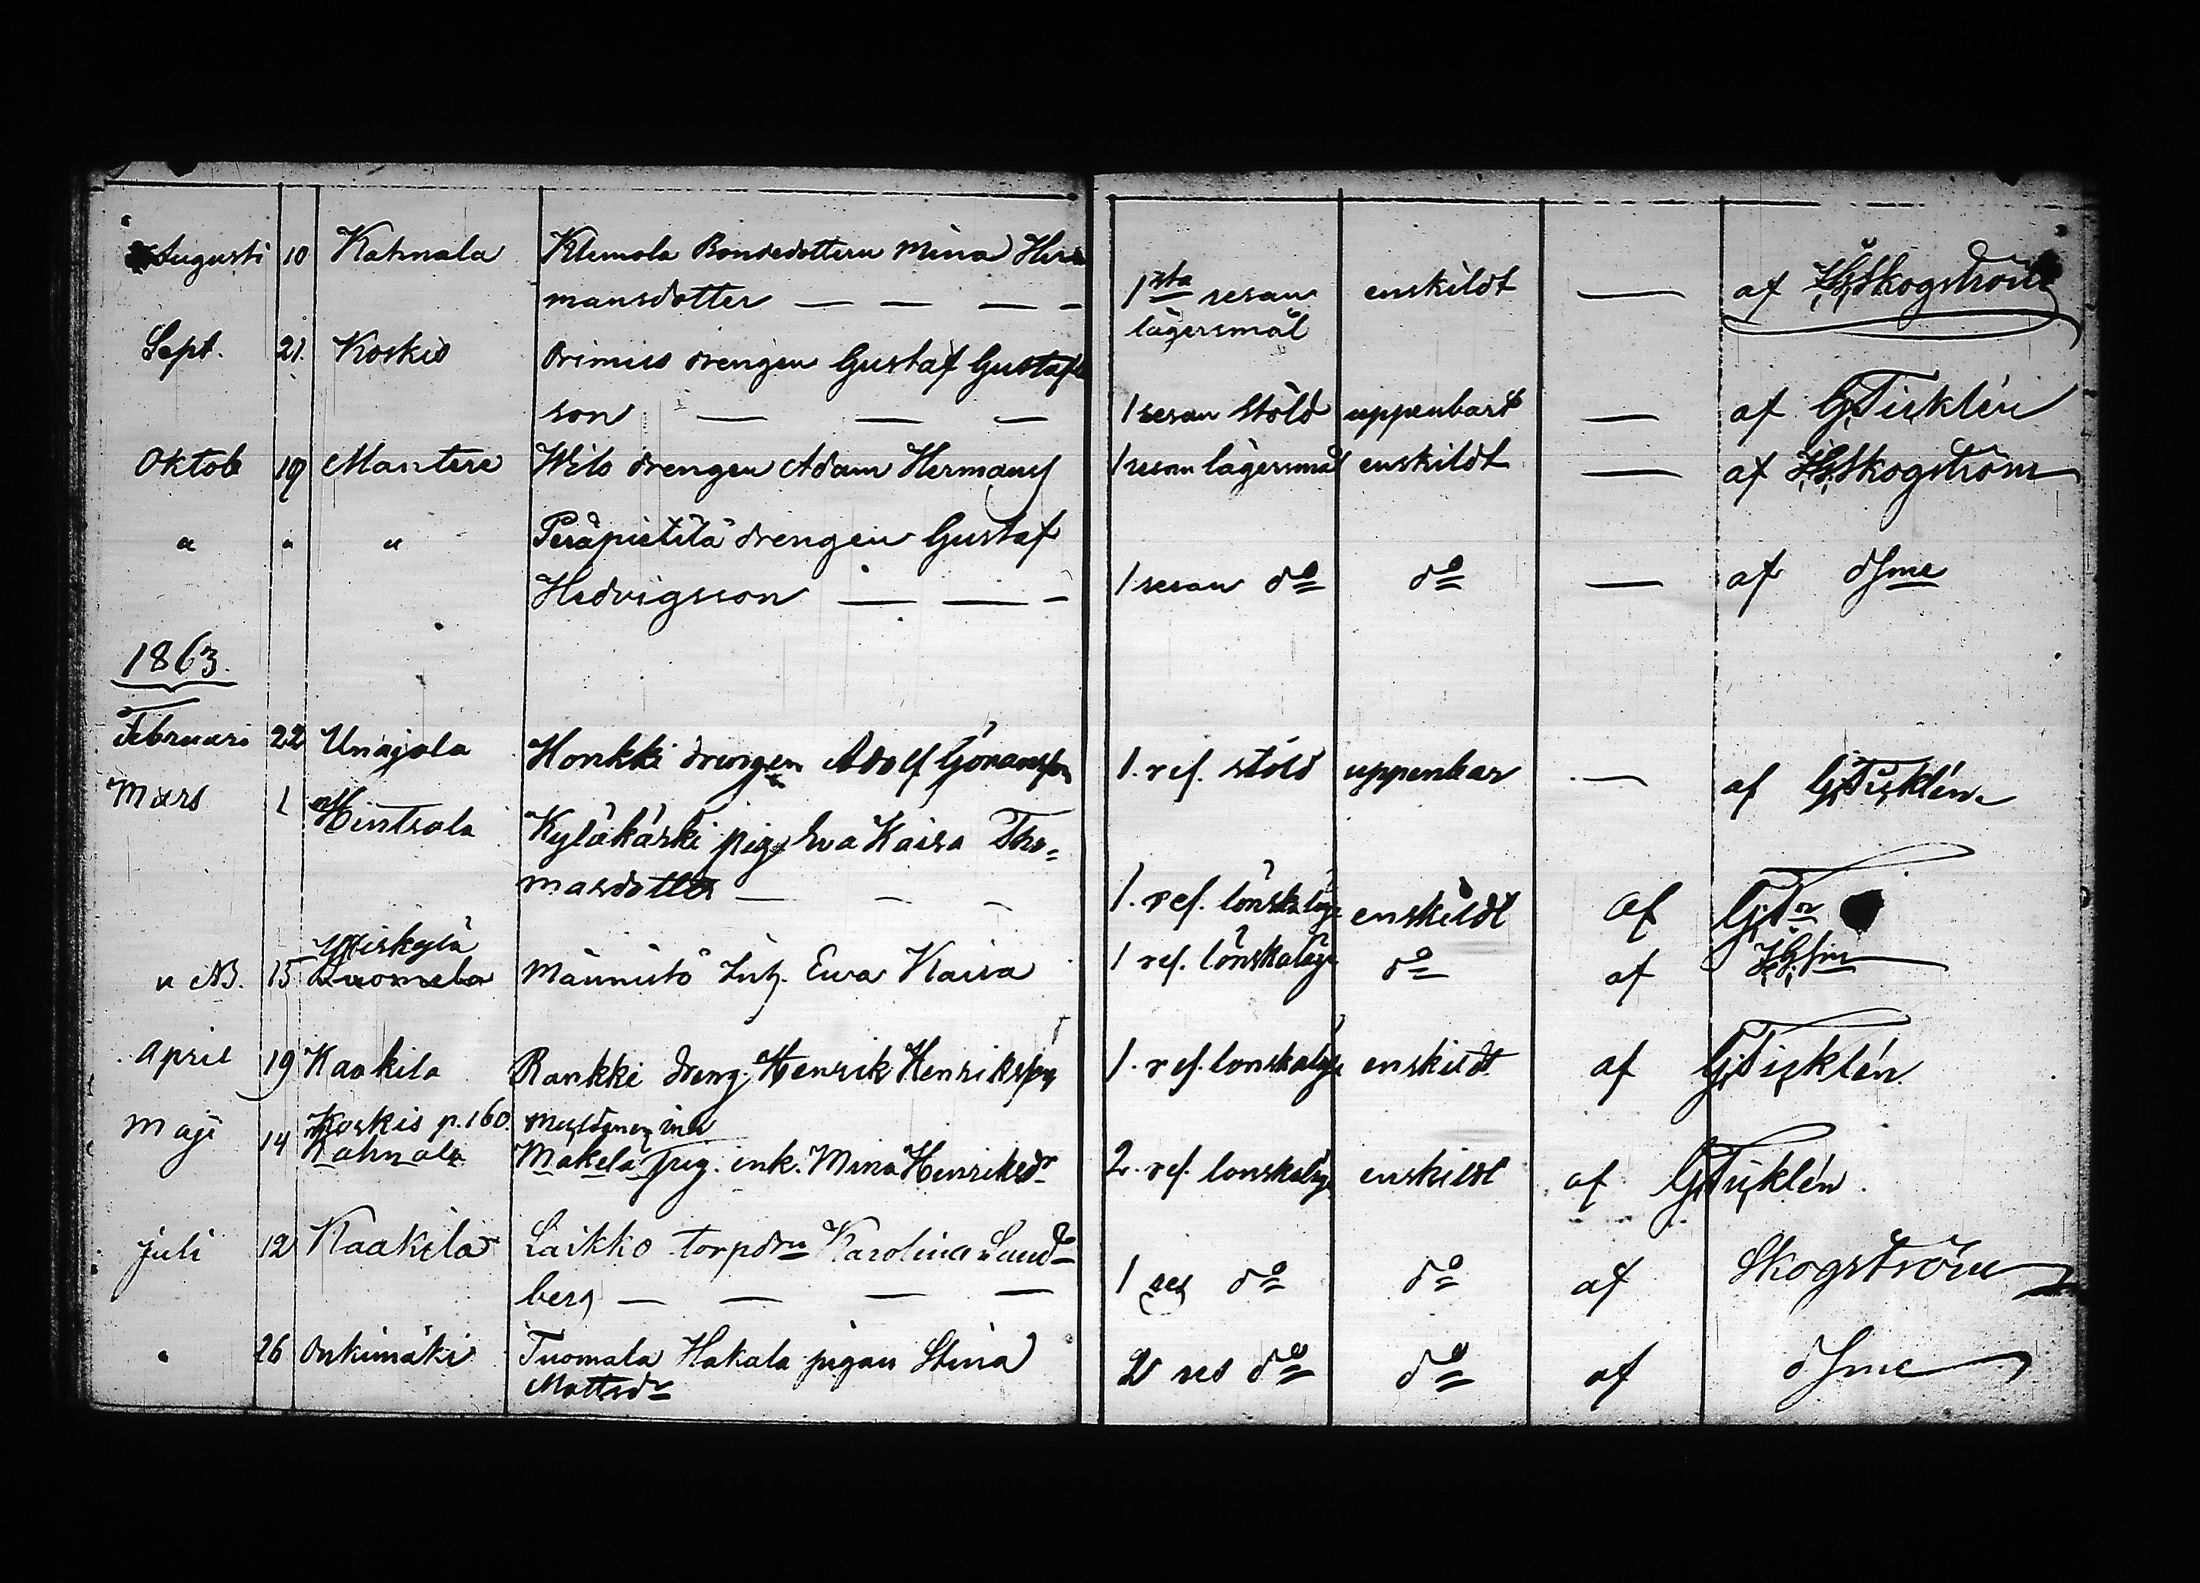 Augusti 10 Kahnala Klemola Bondedottern Mina Her
mansdotter — — — — 1sta resan enskildt — af HGSkogström
lägersmål
Sept. 21. Koskis Primus drengen Gustaf Gustafs
son — — — 1 resan Stöld uppenbart — af G,Ticklén
Oktob 19 Mantere Wilo drengen Adam Hermans 1 resan lägersmål enskildt — af HGSkogström
" " " Peräpietilä drengen Gustaf
Hedvigsson — — — 1 resan do do — af dsme
1863.
Februari 22 Unajala Honkki drengen Adolf Göransson 1. res. stöld uppenbar — af G,Ticklén
Mars 1 Hintsala Kyläkärki pig. Eva Kaisa Tho=
masdotter — — — 1. res. lönskaläge enskildt af G,Tn
Yliskylä
" NB. 15 Tuomela Männistö Inh. Ewa Kaisa 1 res. lönskaläge do af HGSm
April 19 Kaakila Rankki dreng. Henrik Henriksson 1. res. lönskaläge enskildt af G,Ticklén.
Koskis p. 160.
Maji 14 Kahnala Mäkelä pig. enk. Mina Henriksdr 2. res. lonskaläg enskildt af G,Ticklén.
Juli 12 Kaakila Laikko torpdrn Karolina Sand=
berg — — — — 1 res do do af Skogström
" 26 Onkimäki Tuomala Hakala pigan Stina
Mattsdr 2 res do do af dsme